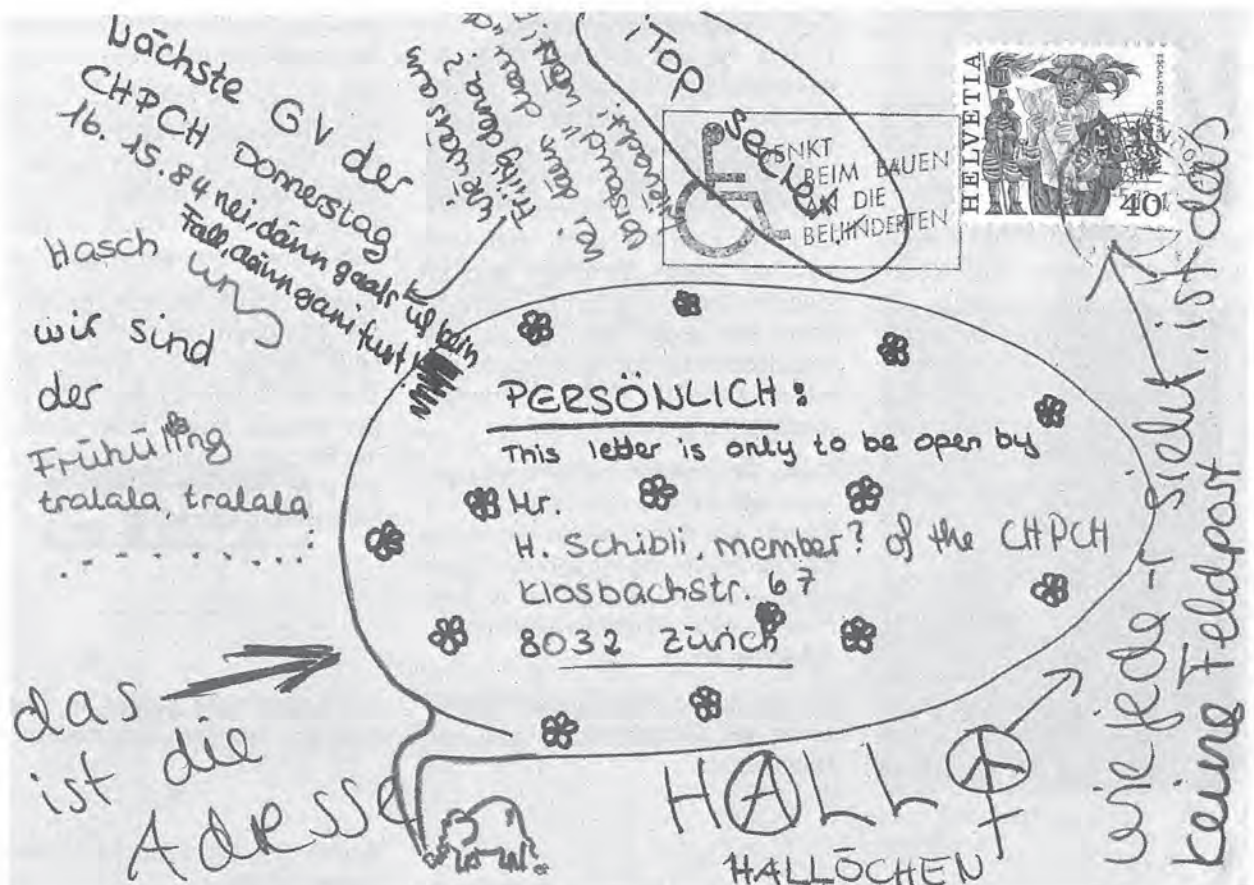 Nächste GV der
CHPCH Donnerstag
16. 15.84 nei, dänn gaats uf kein
Fall, dänn gani furt!
Hasch
wir sind
der
Frühüling
tralala, tralala
. . . . . . . . . :
wie wärs am
nei, dänn
Vorstand"
¡TOP
secret
DENKT
BEIM BAUEN
AN DIE
BEHINDERTEN
HELVETIA
40
PERSÖNLICH:
This letter is only to be open by
Mr.
H. Schibli, member? of the CHPCH
Klosbachstr. 67
8032 Zürich
das
ist die
Adresse
HALLO
HALLÖCHEN
wie jede-r sieht, ist das
keine Feldpost